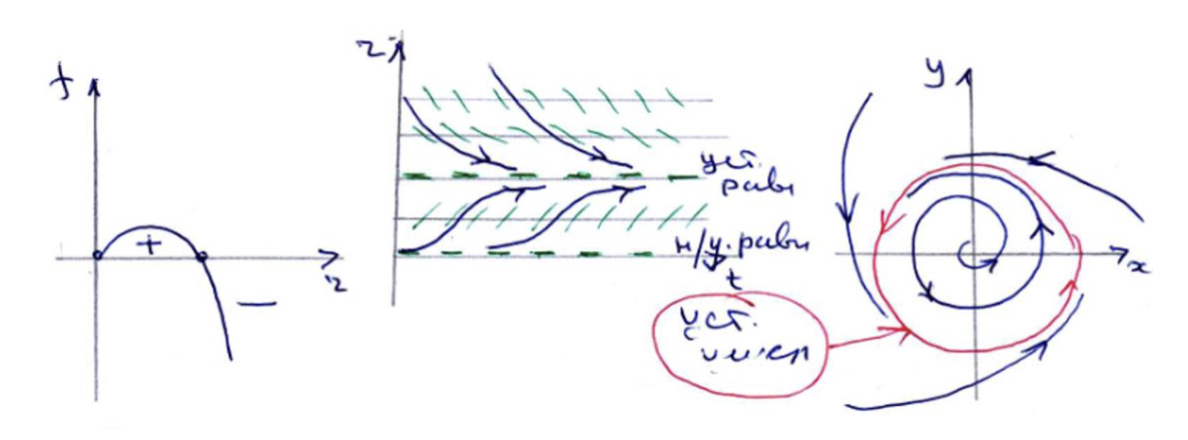 f
+
−
r
r
уст.
равн
н/у. равн
t
уст.
цикл
y
x